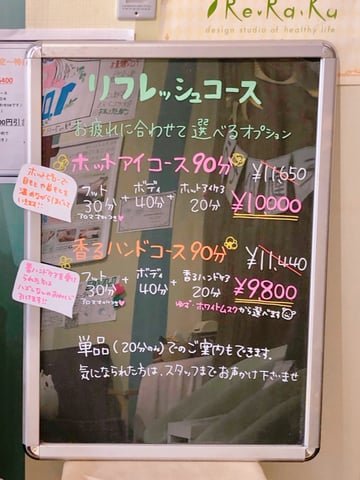 Re.Ra.Ku
design studio of healthy life
リフレッシュコース
お疲れに合わせて選べるオプション
ホットアイコース90分
¥11,650
フット30分 + ボディ40分 + ホットアイケア20分
¥10,000
アロマオイルつき
香るハンドコース90分
¥11,440
フット30分 + ボディ40分 + 香るハンドケア20分
¥9,800
アロマオイルつき
ゆず・ホワイトムスクから選べます
単品(20分のみ)でのご案内もできます。
気になられた方は、スタッフまでお声かけ下さいませ